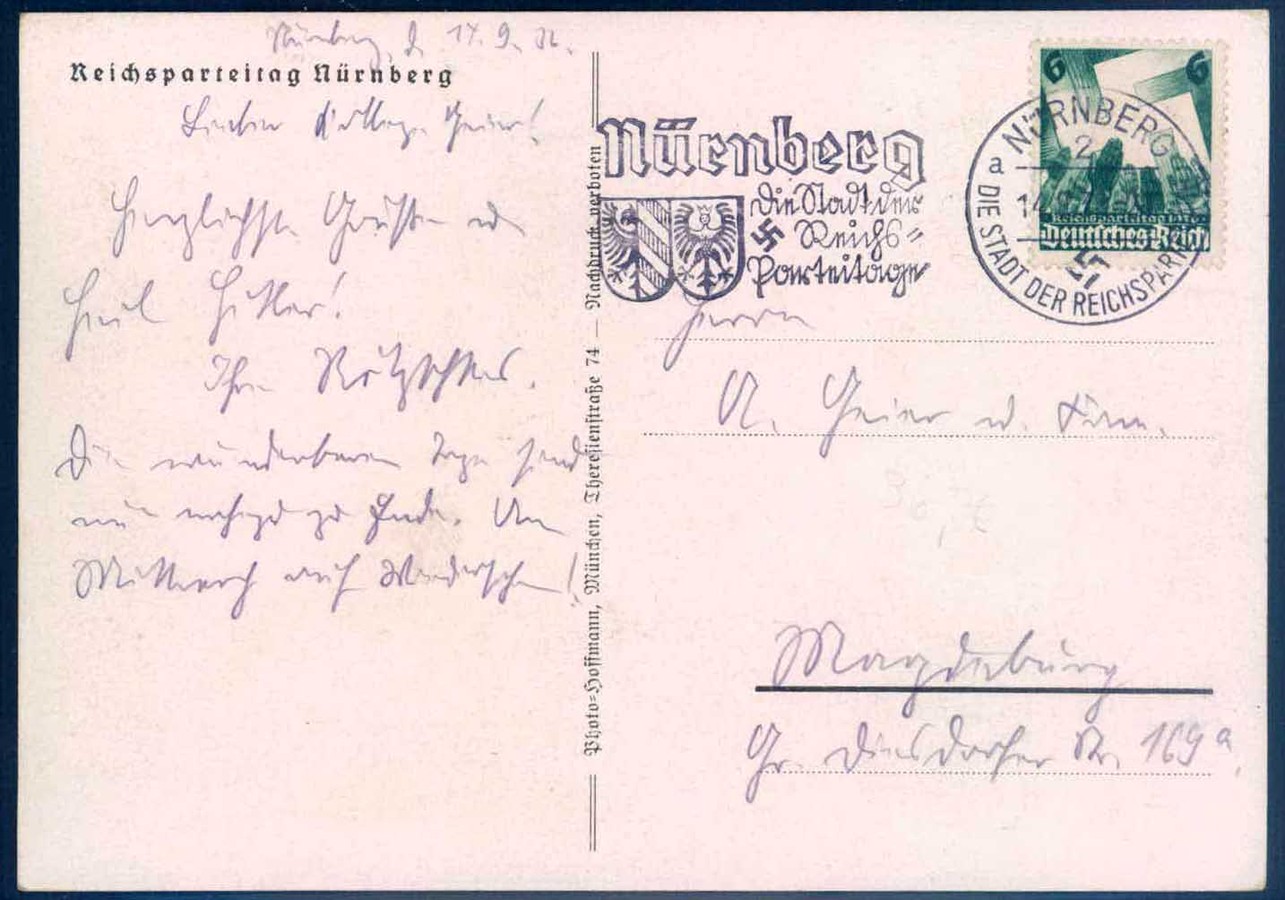 Nürnberg, d. 14. 9. 36.
Reichsparteitag Nürnberg
Lieber Kollege Geier!
Herzlichste Grüße u.
Heil Hitler!
Ihr
Die wunderbaren Tage sind
nun zu Ende. Am
Mittwoch auf Wiedersehen!
Photo-Hoffmann, München, Theresienstraße 74 — Nachdruck verboten
Nürnberg
Die Stadt der
Reichs-
Parteitage
6 6
Reichsparteitag 1936
Deutsches Reich
NÜRNBERG
2
a
14
DIE STADT DER REICHSPART
Herrn
A. Geier u. Fam.
Magdeburg
Gr. Diesdorfer Str. 169a.